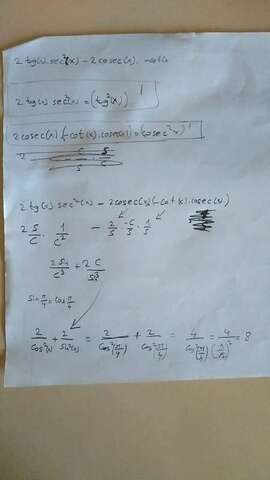 2 tg(x) sec²(x) - 2 cosec(x) · -cot(x
2 tg(x) sec²(x) = (tg²(x))'
2 cosec(x) (-cot(x).cosec(x)) = (cosec²x)'
2 tg(x) sec²(x) - 2 cosec(x) (-cot(x).cosec(x))
2 S/C · 1/C² - 2/S · -C/S · 1/S
2 S/C³ + 2 C/S³
Sin π/4 = Cos π/4
2/Cos²(x) + 2/Sin²(x) = 2/Cos²(π/4) + 2/Cos²(π/4) = 4/Cos²(π/4) = 4/(1/√2)² = 8